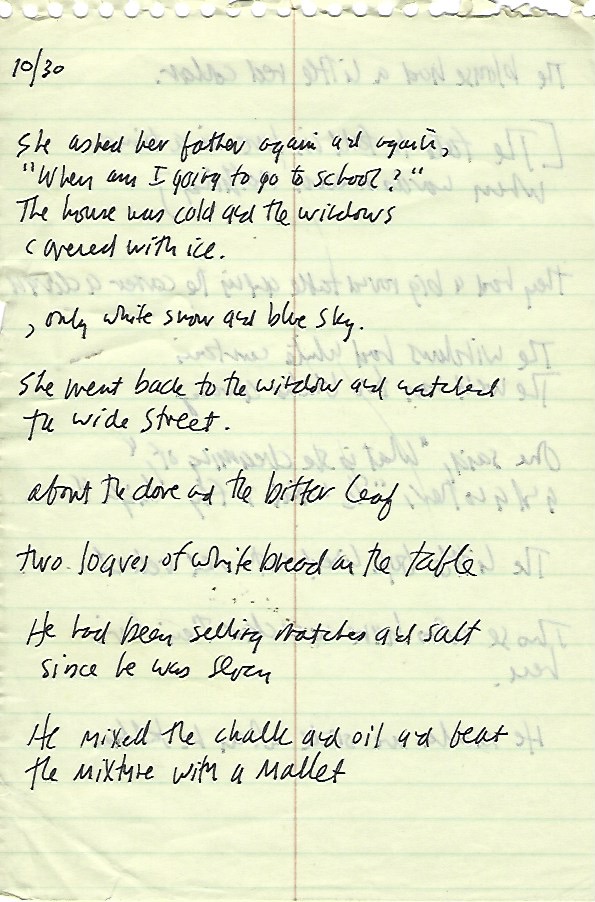 10/30
She asked her father again and again,
"When am I going to go to school?"
The house was cold and the windows
covered with ice.
, only white snow and blue sky.
She went back to the window and watched
the wide street.
about the dove and the bitter leaf
two loaves of white bread on the table
He had been selling matches and salt
since he was seven
He mixed the chalk and oil and beat
the mixture with a mallet